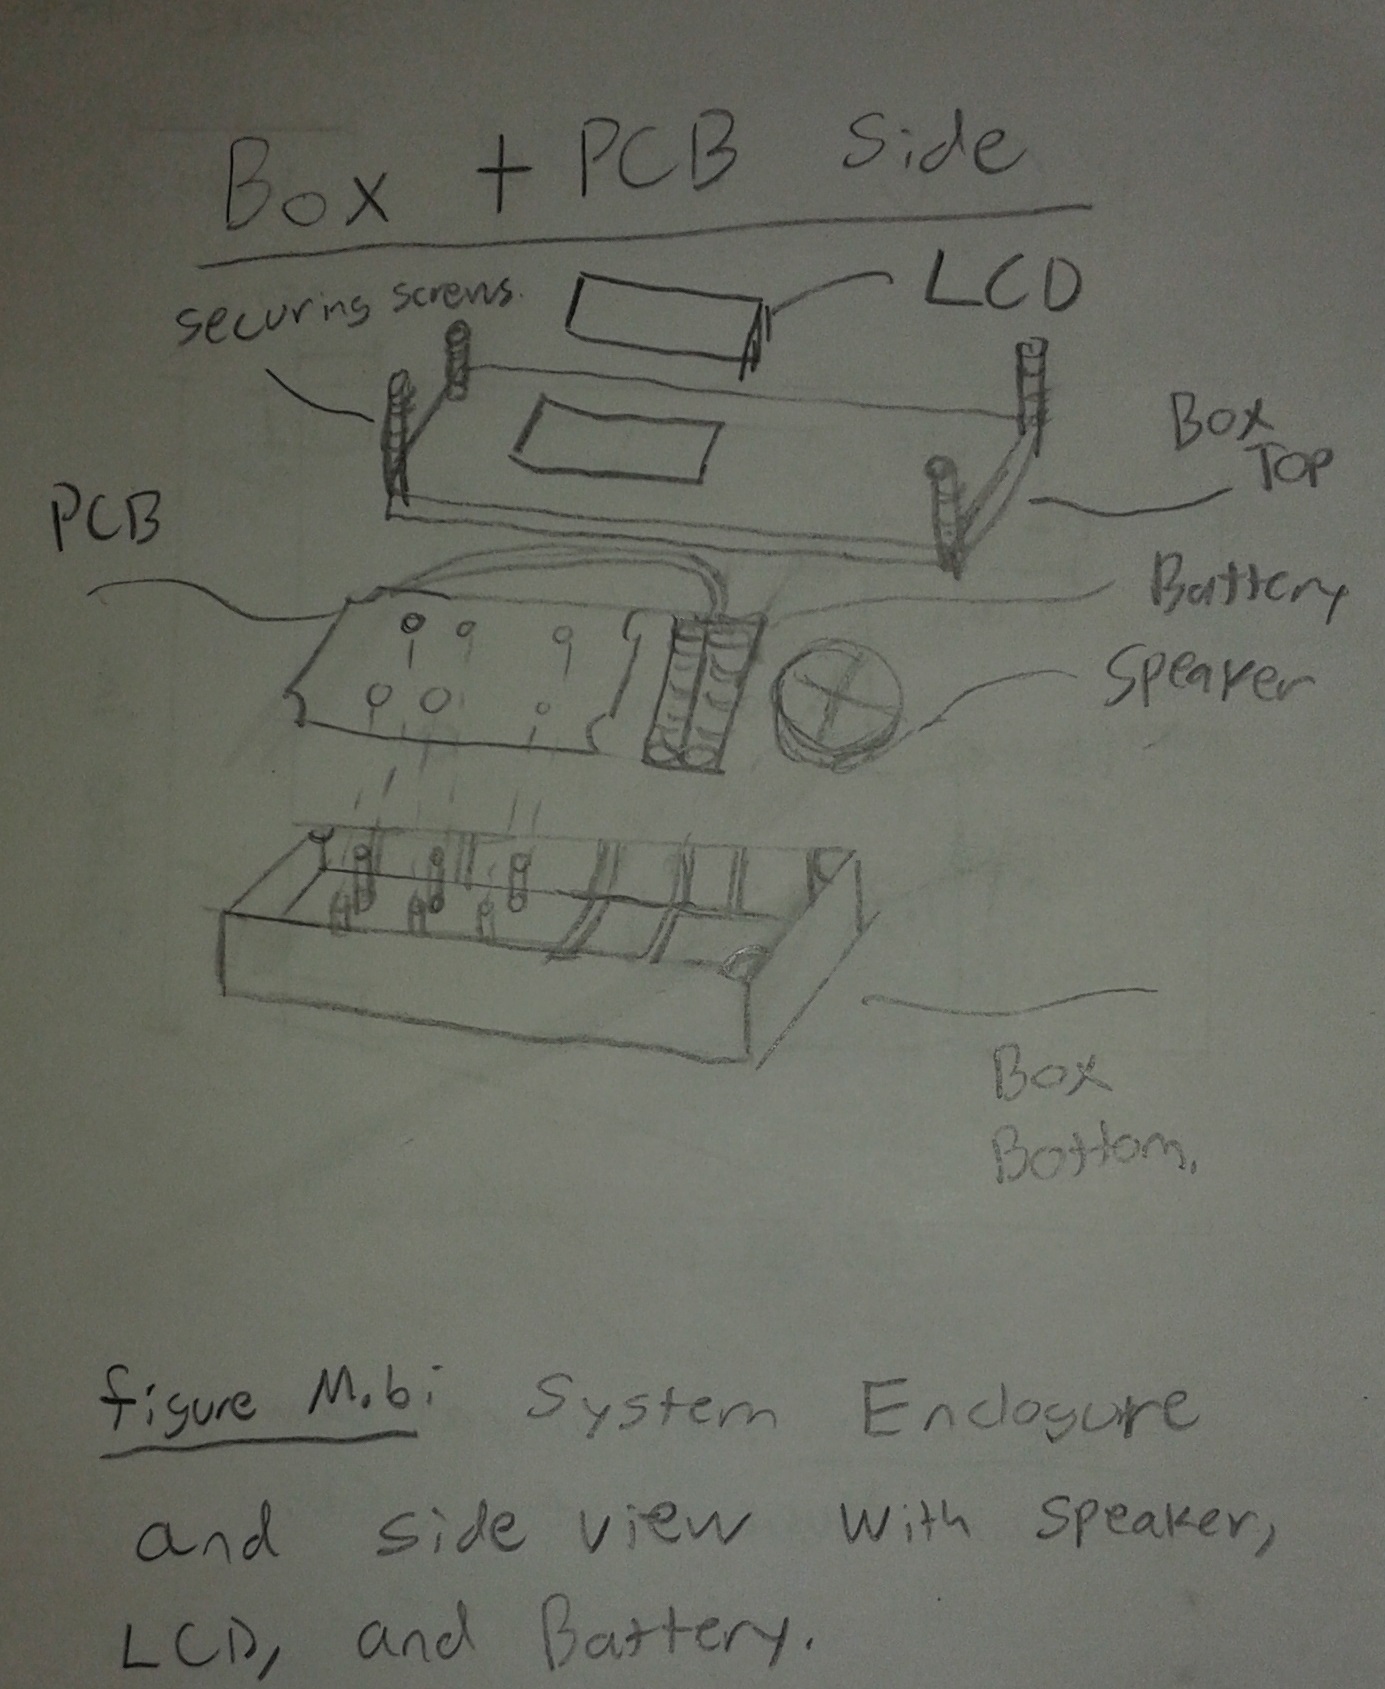 Box + PCB Side
securing screws.
LCD
Box
TOP
PCB
Battery
Speaker
Box
Bottom.
figure M.b: System Enclosure
and side view with speaker,
LCD, and Battery.